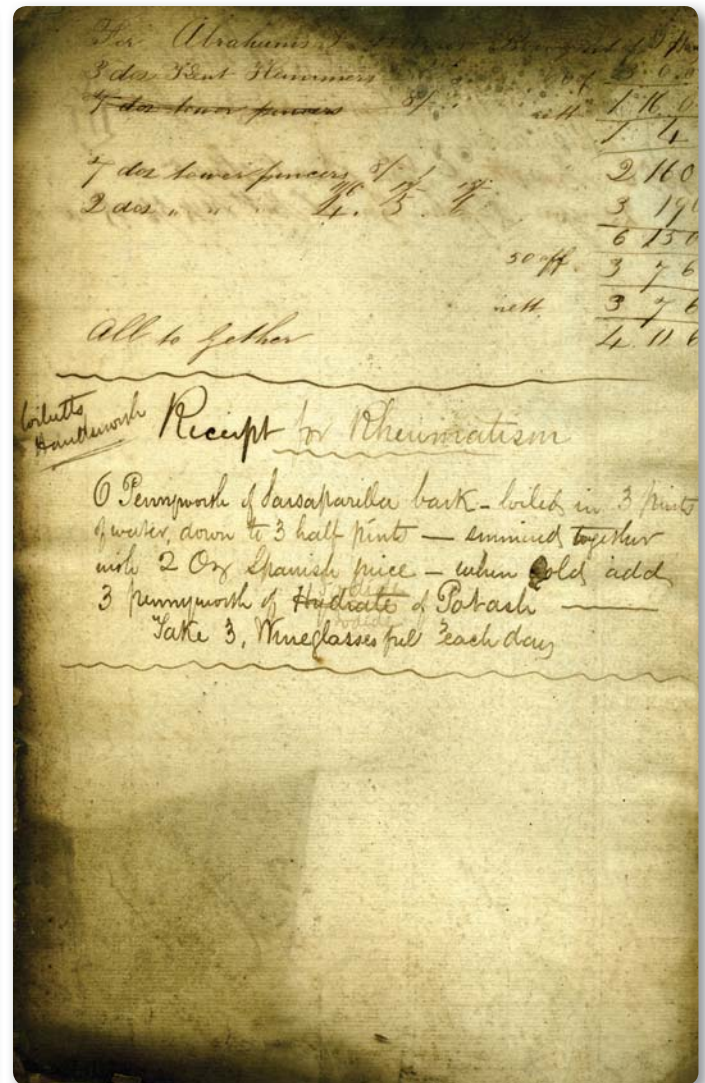 3 doz Kent Hammers 3 0 0
7 doz tower pincers 8/ nett 1 16 0
1 4
7 doz tower pincers 8/ 2 16 0
2 doz " " 4. 5. 6 3 19 0
6 15 0
50 off 3 7 6
nett 3 7 6
All to gether 4 11 6
Handsworth
Receipt for Rheumatism
6 Pennyworth of Sarsaparilla bark - boiled in 3 pints
of water, down to 3 half pints — simmered together
with 2 Oz Spanish juice - when Cold add
3 pennyworth of Hydrate of Potash —
Iodide
Take 3, Wineglasses full each day